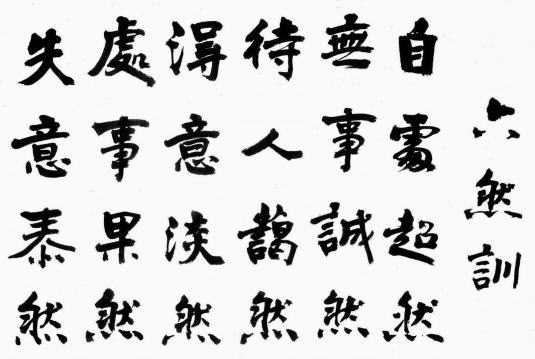 六然訓
自處超然
無事誠然
待人藹然
得意淡然
處事果然
失意泰然